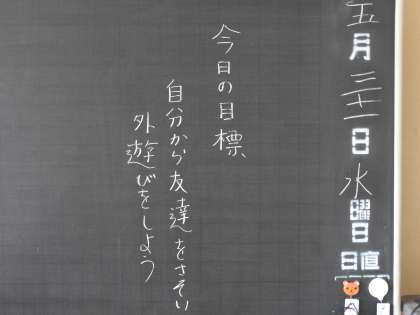 五月三十一日水曜日
日直
今日の目標、
自分から友達をさそい
外遊びをしよう